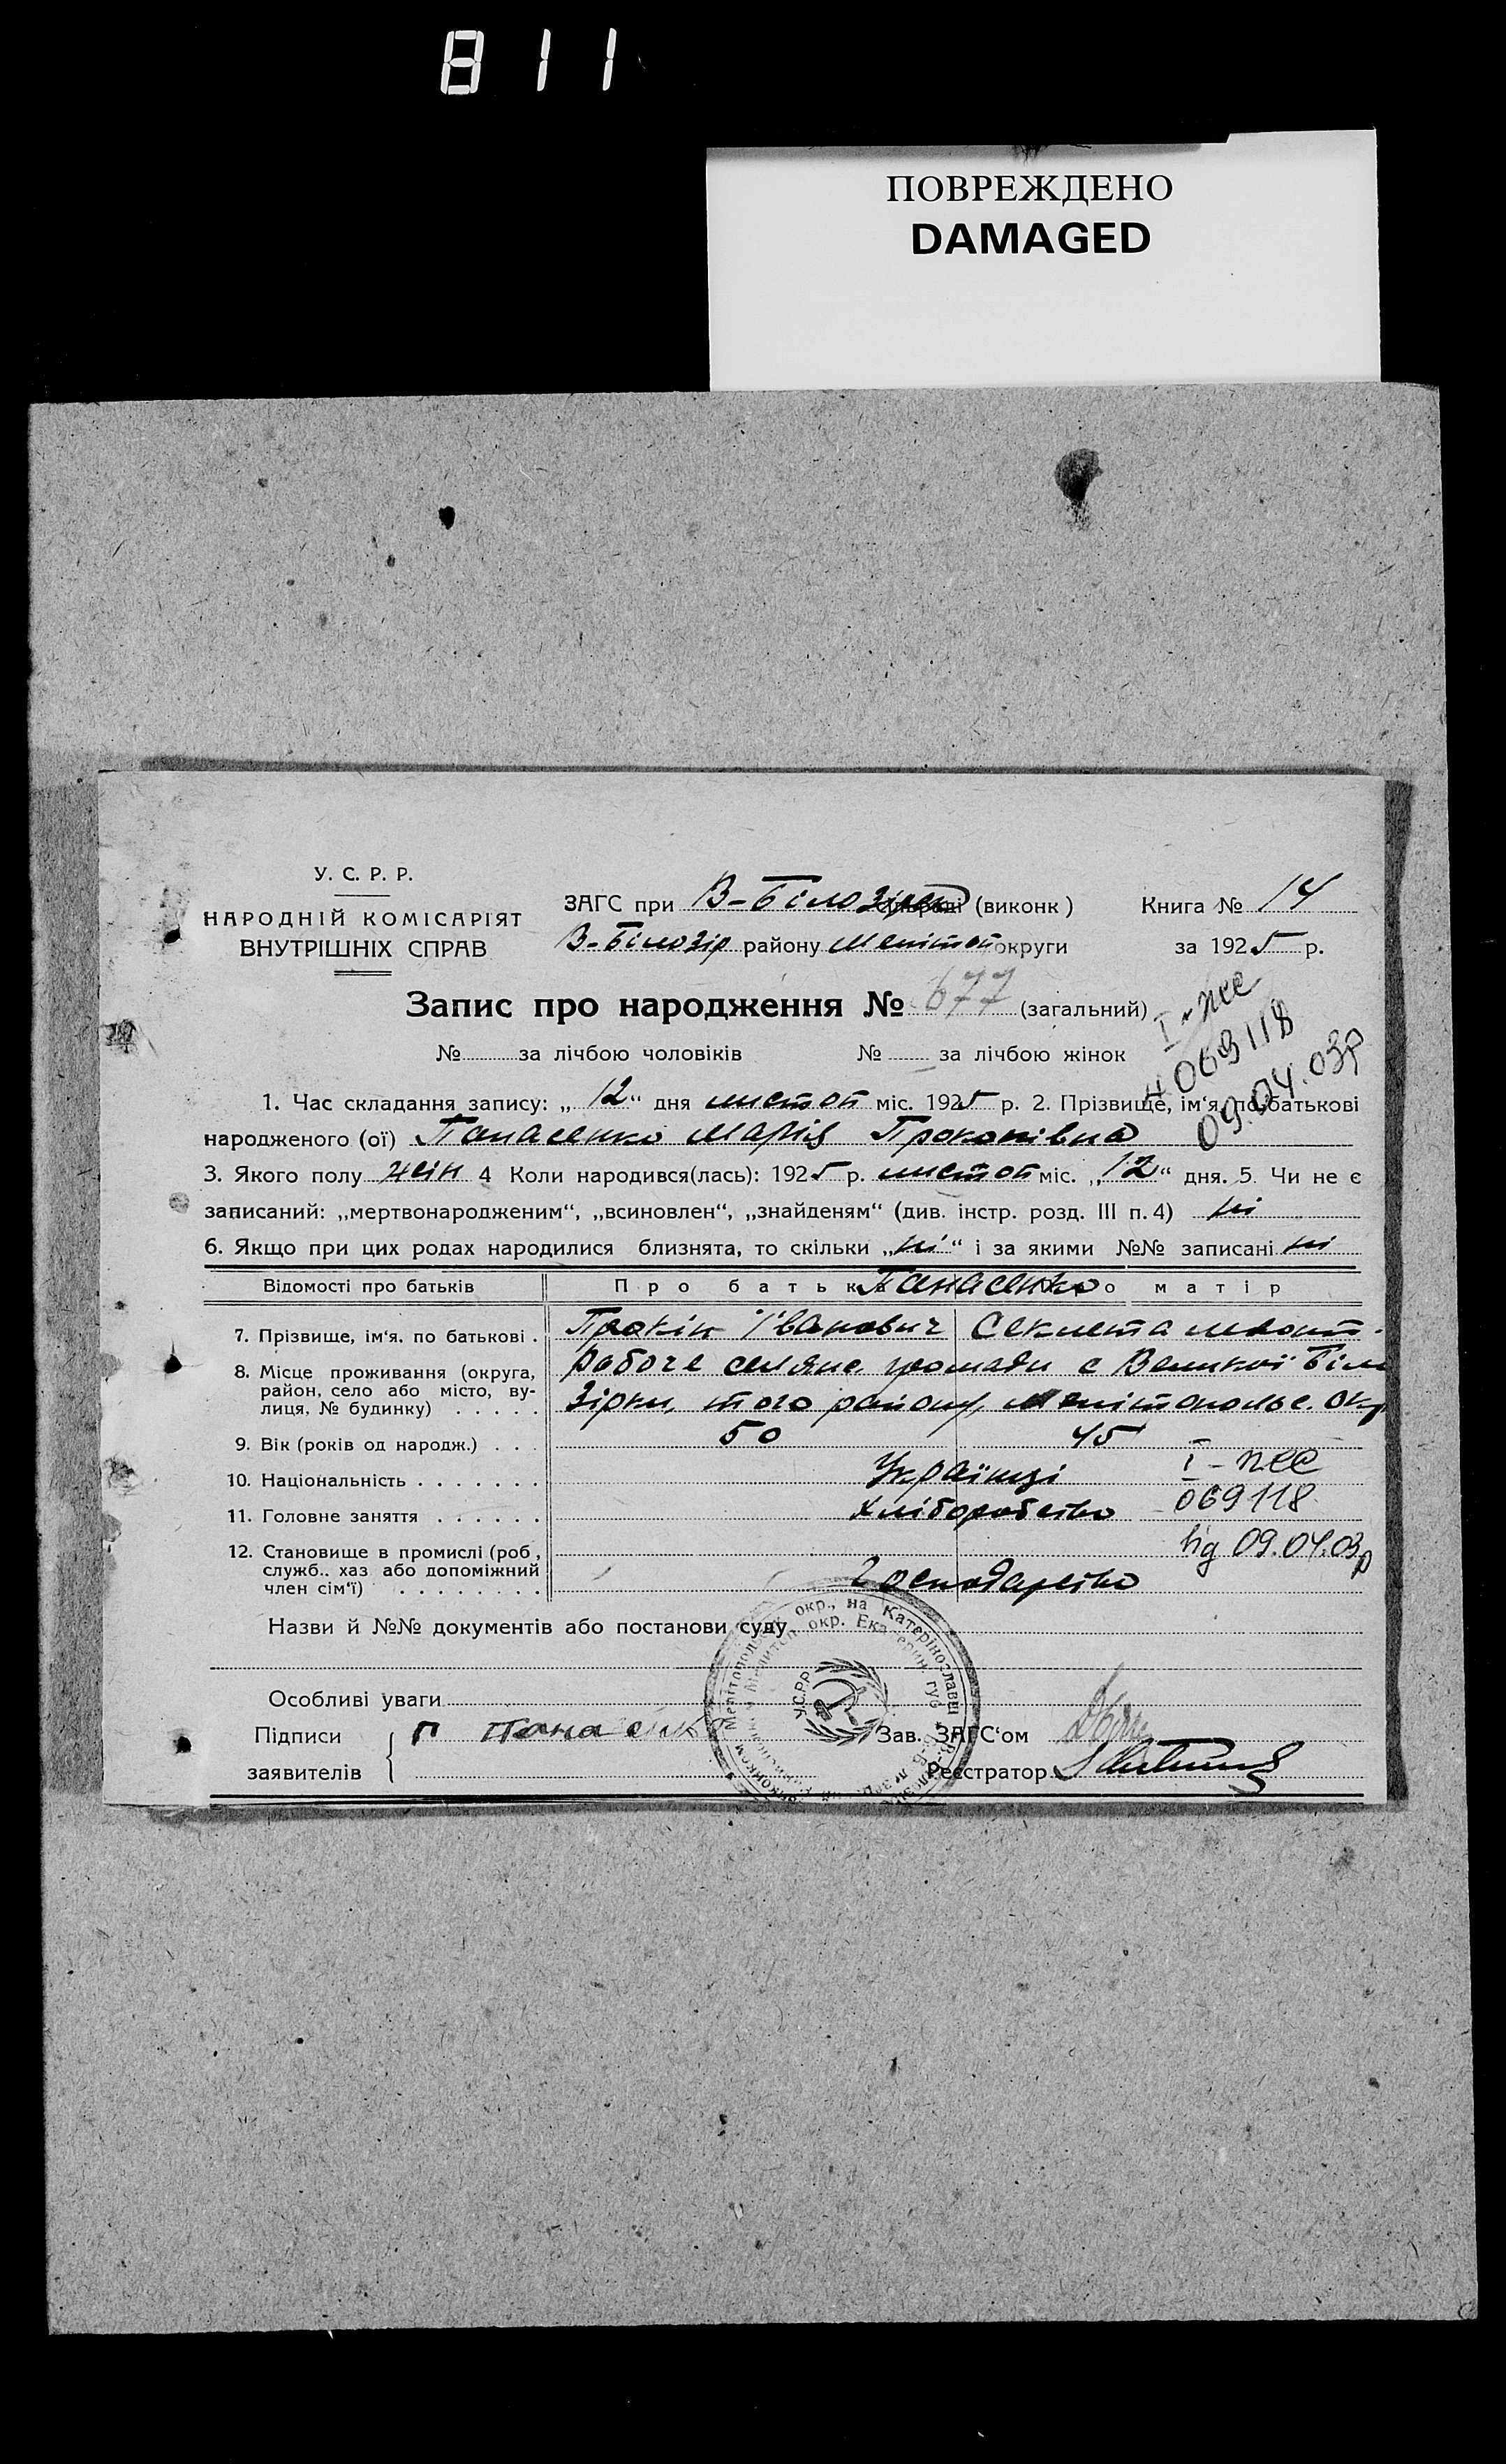 811
ПОВРЕЖДЕНО
DAMAGED
У. С. Р. Р.
НАРОДНІЙ КОМІСАРІЯТ
ВНУТРІШНІХ СПРАВ
ЗАГС при В-Білозірськ (виконк)
Книга № 14
В-Білозір району Мелітоп округи
за 1925 р.
Запис про народження № 677 (загальний)
I-жс
№ за лічбою чоловіків № за лічбою жінок
069118
09.04.03р
1. Час складання запису: „12“ дня листоп міс. 1925 р. 2. Прізвище, ім‘я, по батькові
народженого (ої) Панасенко Марія Прокопівна
3. Якого полу жін 4 Коли народився(лась): 1925 р. листоп міс. „12“ дня. 5. Чи не є
записаний: „мертвонародженим“, „всиновлен“, „знайденям“ (див. інстр. розд. III п. 4) ні
6. Якщо при цих родах народилися близнята, то скільки „ні“ і за якими №№ записані ні
Відомості про батьків
Про батька Панасенко Про матір
7. Прізвище, ім‘я, по батькові . Прокіп Іванович Секлета
8. Місце проживання (округа, район, село або місто, вулиця, № будинку) . . . . .
робоче селянс. громади с Великої Біло
зірки, того району, Мелітопольс. окр
9. Вік (років од народж.) . . . 50 45
10. Національність . . . . . . . Українці I-жс
11. Головне заняття . . . . . . Хліборобство 069118
12. Становище в промислі (роб, служб.. хаз або допоміжний член сім‘ї) . . . . . . . .
від 09.04.03р
Господарство
Назви й №№ документів або постанови суду
Особливі уваги
Підписи заявителів П Панасенко
Зав. ЗАГС‘ом
Реєстратор
У.С.Р.Р.